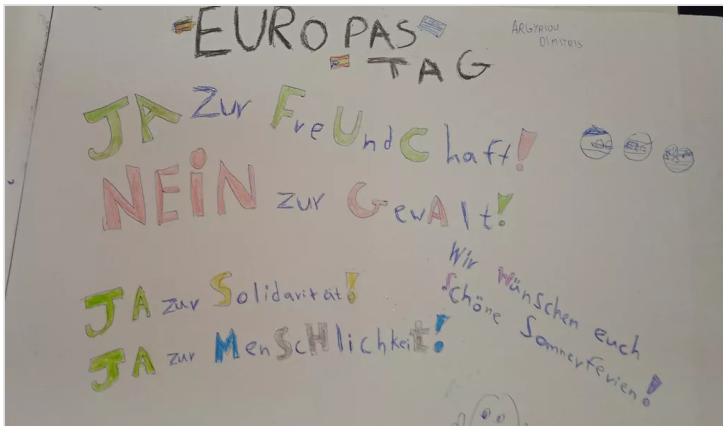 EUROPAS
TAG
ARGYRIOU
DIMITRIS
JA Zur FreUndChaft!
NEiN zur GewAlt!
JA zur Solidarität!
JA zur MenScHlichkeit!
Wir wünschen euch
Schöne Sommerferien!